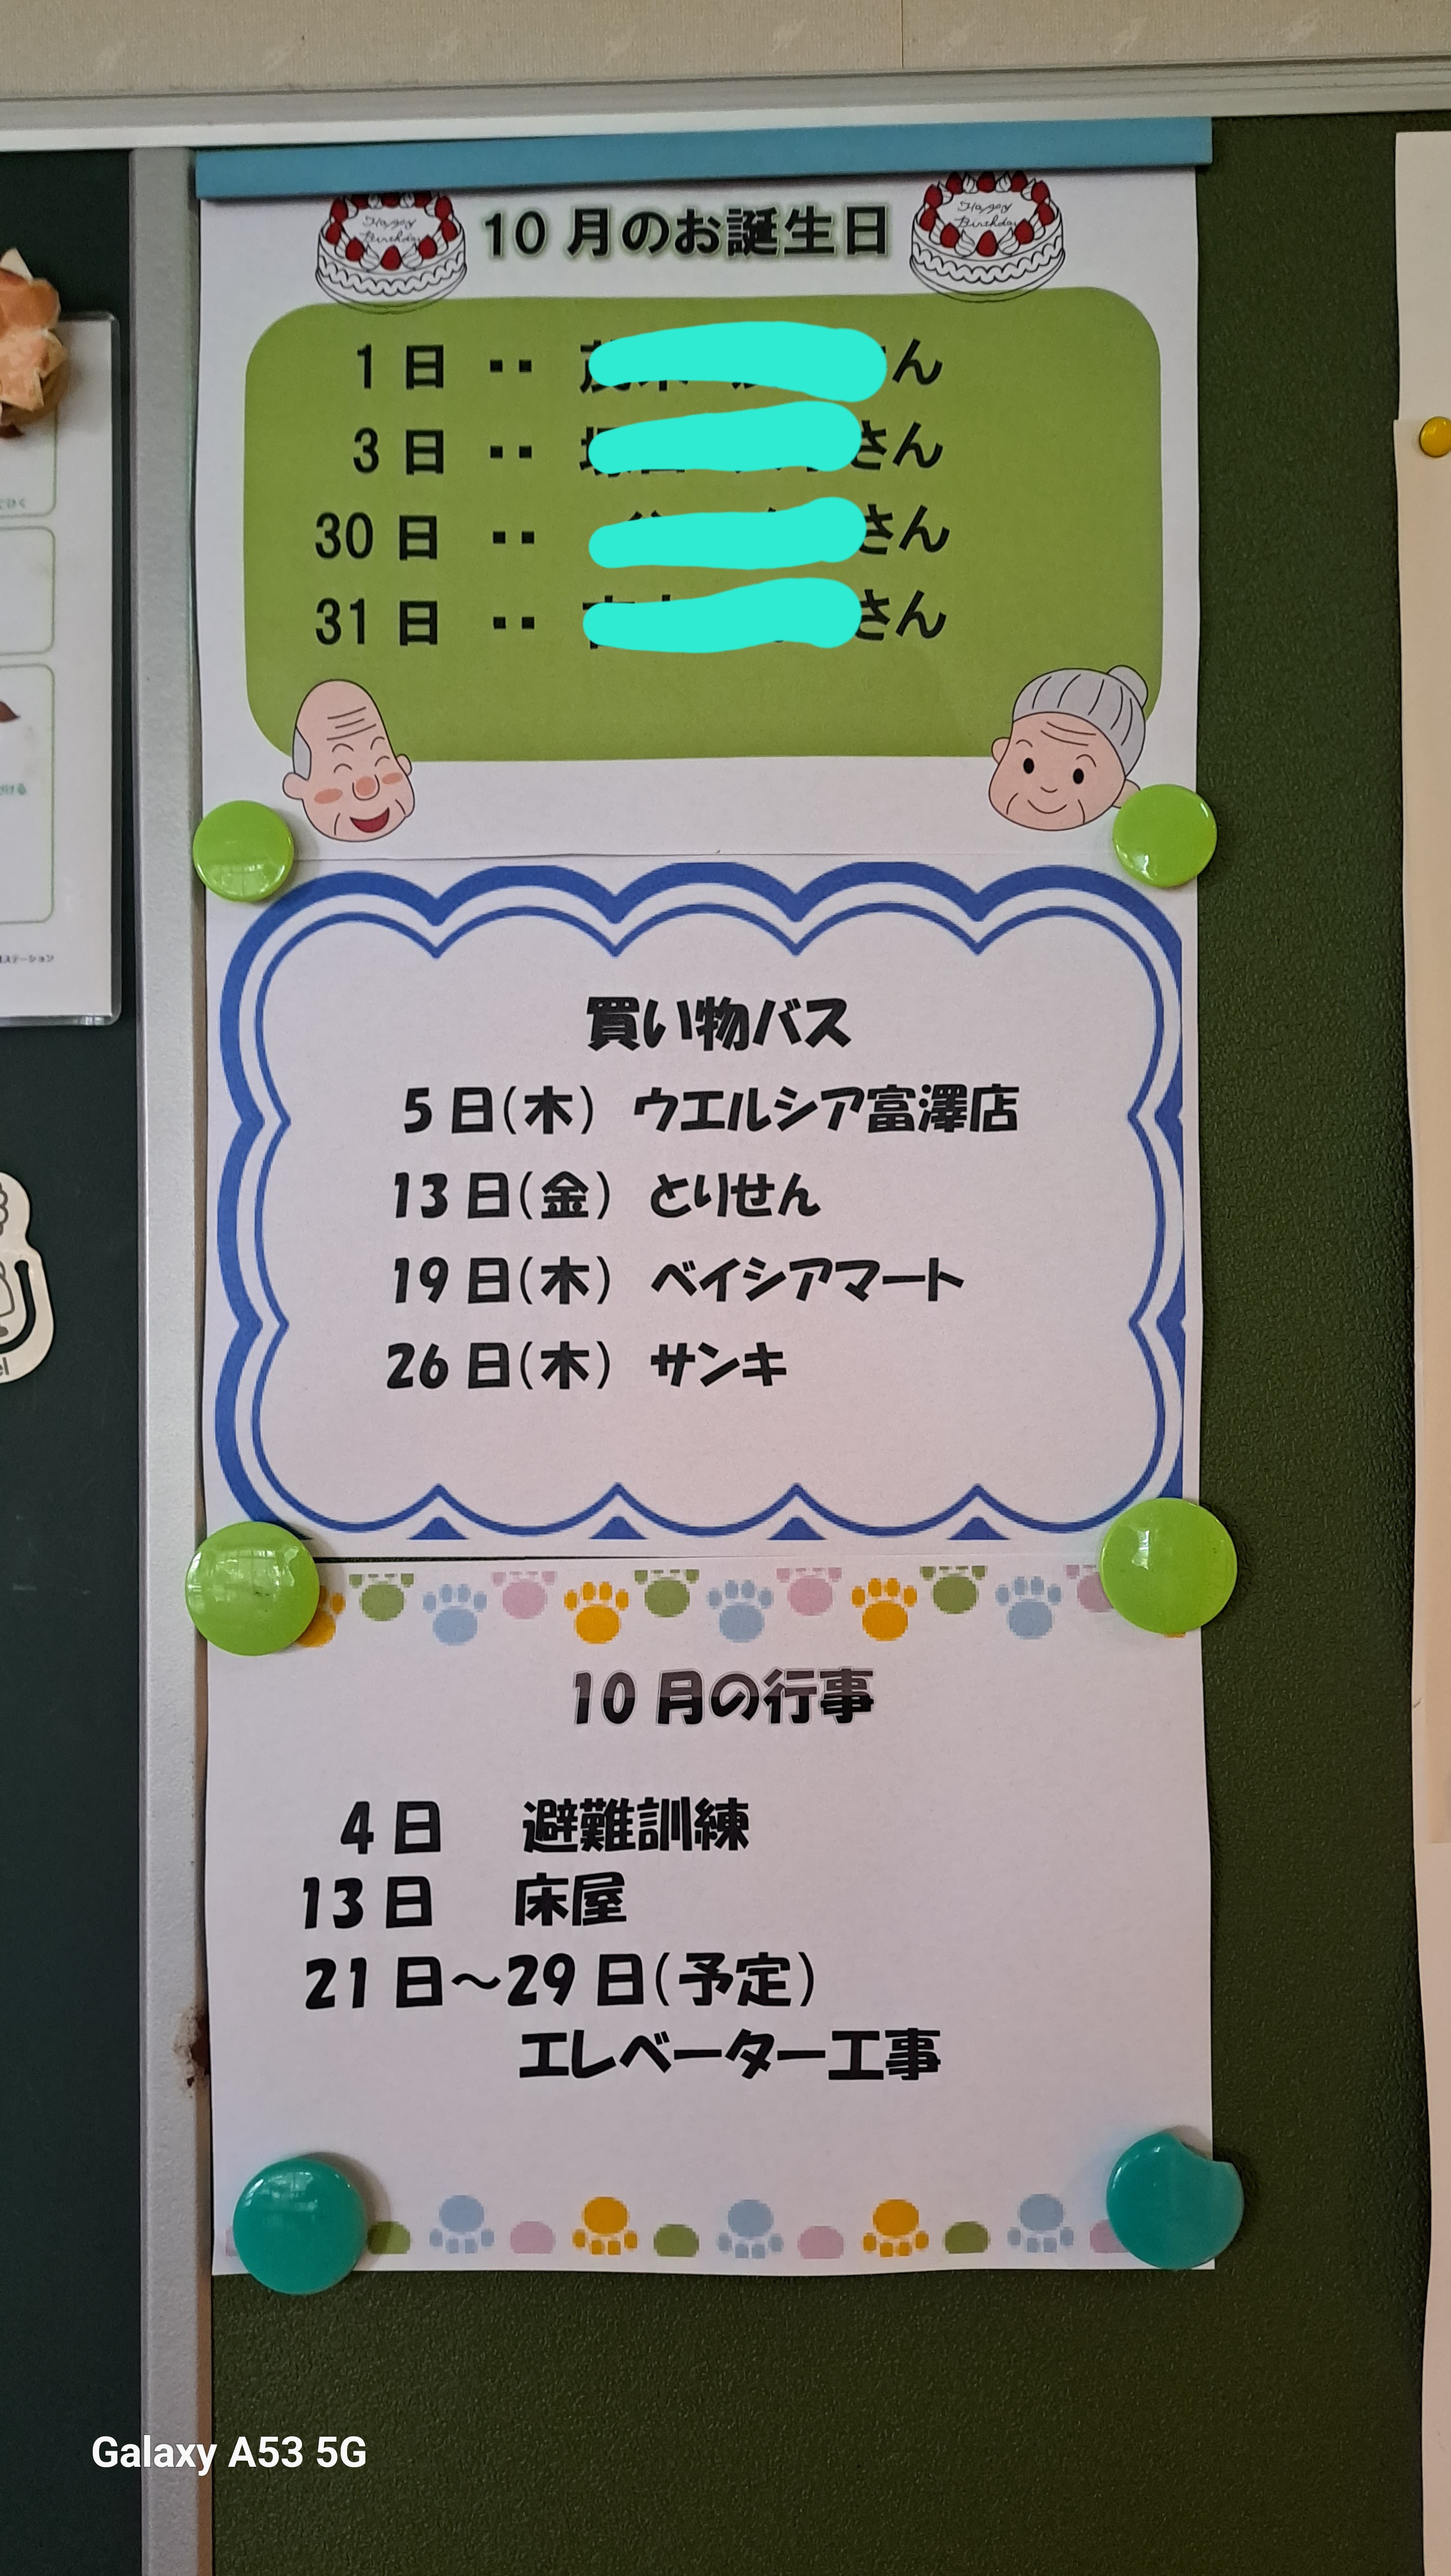 Happy
Birthday
10月のお誕生日
Happy
Birthday
1日 ‥ ん
3日 ‥ さん
30日 ‥ さん
31日 ‥ さん
買い物バス
5日(木) ウエルシア富澤店
13日(金) とりせん
19日(木) ベイシアマート
26日(木) サンキ
10月の行事
4日 避難訓練
13日 床屋
21日～29日(予定)
エレベーター工事
ステーション
Galaxy A53 5G